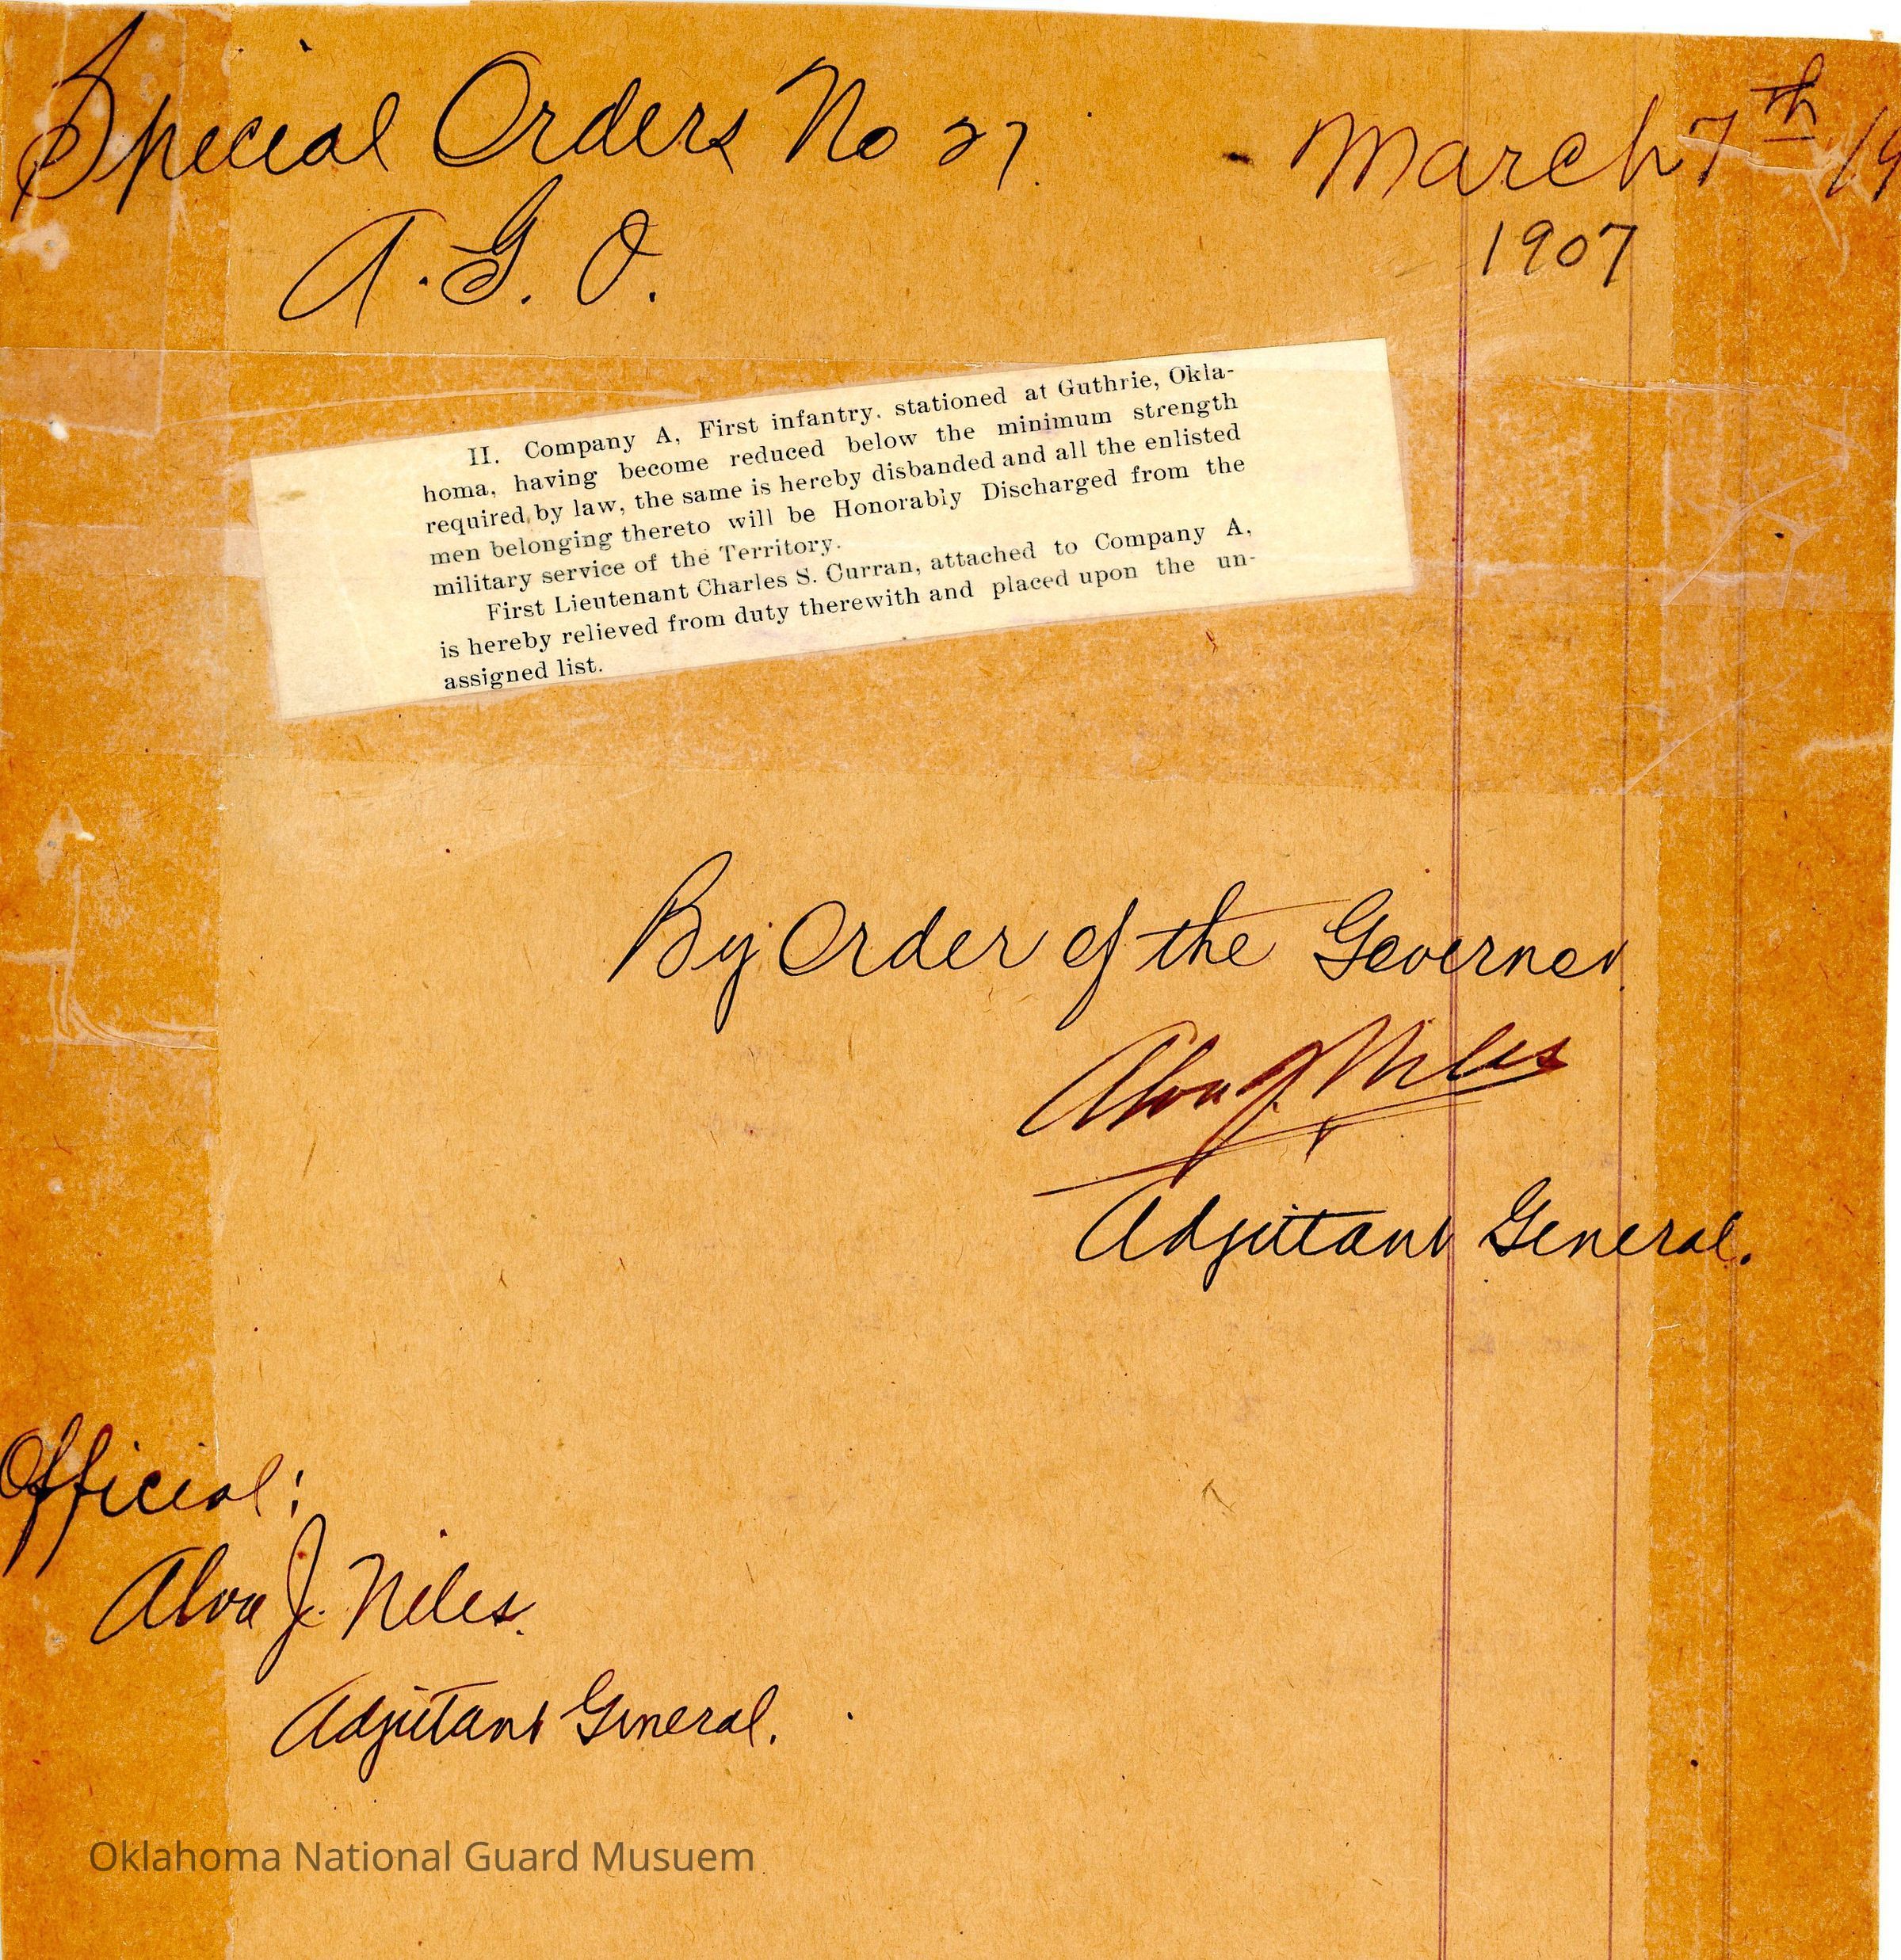 Special Orders No 27. March 7th 19
A. G. O. 1907
II. Company A, First infantry, stationed at Guthrie, Okla-
homa, having become reduced below the minimum strength
required by law, the same is hereby disbanded and all the enlisted
men belonging thereto will be Honorably Discharged from the
military service of the Territory.
First Lieutenant Charles S. Curran, attached to Company A,
is hereby relieved from duty therewith and placed upon the un-
assigned list.
By Order of the Governor.
Alva J. Niles
Adjutant General.
Official:
Alva J. Niles.
Adjutant General.
Oklahoma National Guard Musuem